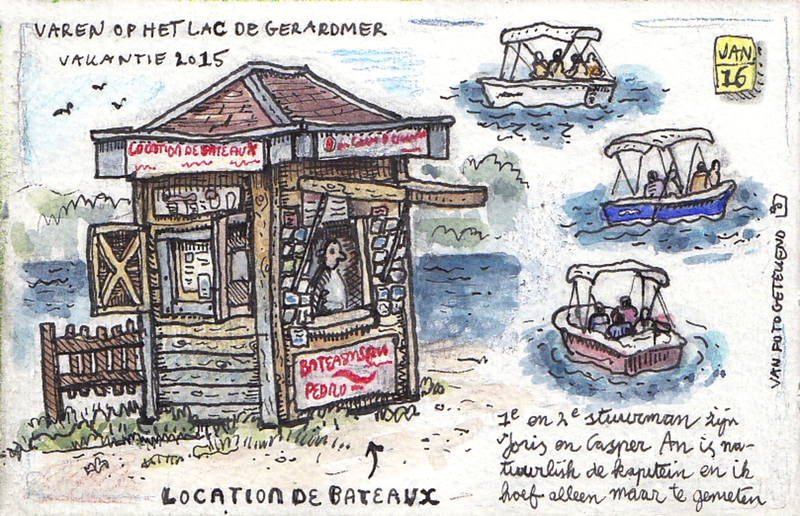 VAREN OP HET LAC DE GERARDMER
VAKANTIE 2015
JAN
16
LOCATION DE BATEAUX
6
BATEAUX
PEDRO
VAN FOTO GETEKEND
LOCATION DE BATEAUX
1e en 2e stuurman zijn
Joris en Casper An is na-
tuurlijk de kapitein en ik
hoef alleen maar te genieten